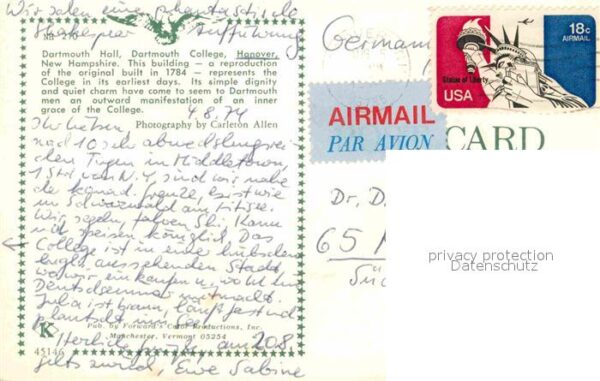 Wir sahen eine phantastische
Shakespear Aufführung
Dartmouth Hall, Dartmouth College, Hanover,
New Hampshire. This building — a reproduction
of the original built in 1784 — represents the
College in its earliest days. Its simple dignity
and quiet charm have come to seem to Dartmouth
men an outward manifestation of an inner
grace of the College.
4.8.74
Photography by Carleton Allen
Ihr Lieben,
nach 10 sehr abwechslungsrei-
chen Tagen in Middletown,
1 Std von N.Y. sind wir nahe
der kanad. Grenze, es ist wie
im Schwarzwald am Titisee.
Wir segeln, fahren Ski.
und speisen königlich. Das
College ist in einer hübschen
engl. aussehenden Stadt
wo wir einkaufen u. wo
Deutschseminar
Julia ist braun, läuft fast und
plantscht im
K
Pub. by Forward's Color Productions, Inc.
Manchester, Vermont 05254
Herzliche Grüße, am 20.8.
45146
gehts zurück, Eure Sabine
Germany
18c
AIRMAIL
Statue of Liberty
USA
AIRMAIL
PAR AVION
CARD
Dr. D.
65
privacy protection
Datenschutz